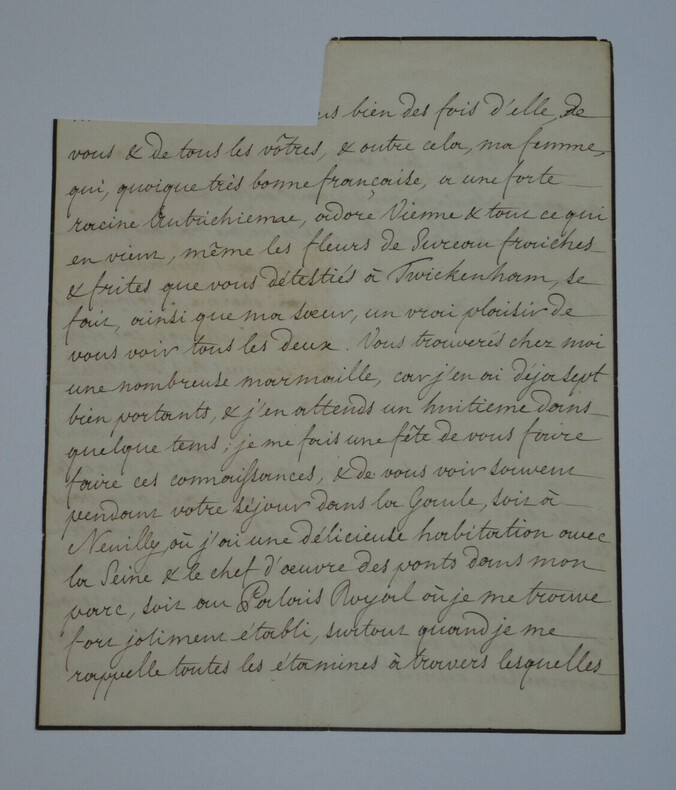 bien des fois d'elle, de
vous & de tous les vôtres, & outre cela, ma femme,
qui, quoique très bonne française, a une forte
racine Autrichienne, adore Vienne & tout ce qui
en vient, même les fleurs de Sureau fraiches
& frites que vous détestiés à Twickenham, se
fait, ainsi que ma sœur, un vrai plaisir de
vous voir tous les deux. Vous trouverés chez moi
une nombreuse marmaille, car j'en ai déja sept
bien portants, & j'en attends un huitieme dans
quelque tems; je me fais une fête de vous faire
faire ces connaissances, & de vous voir souvent
pendant votre séjour dans la Gaule, soit à
Neuilly, où j'ai une délicieuse habitation avec
la Seine & le chef d'œuvre des ponts dans mon
parc, soit au Palais Royal où je me trouve
fort joliment établi, surtout quand je me
rappelle toutes les étamines à travers lesquelles